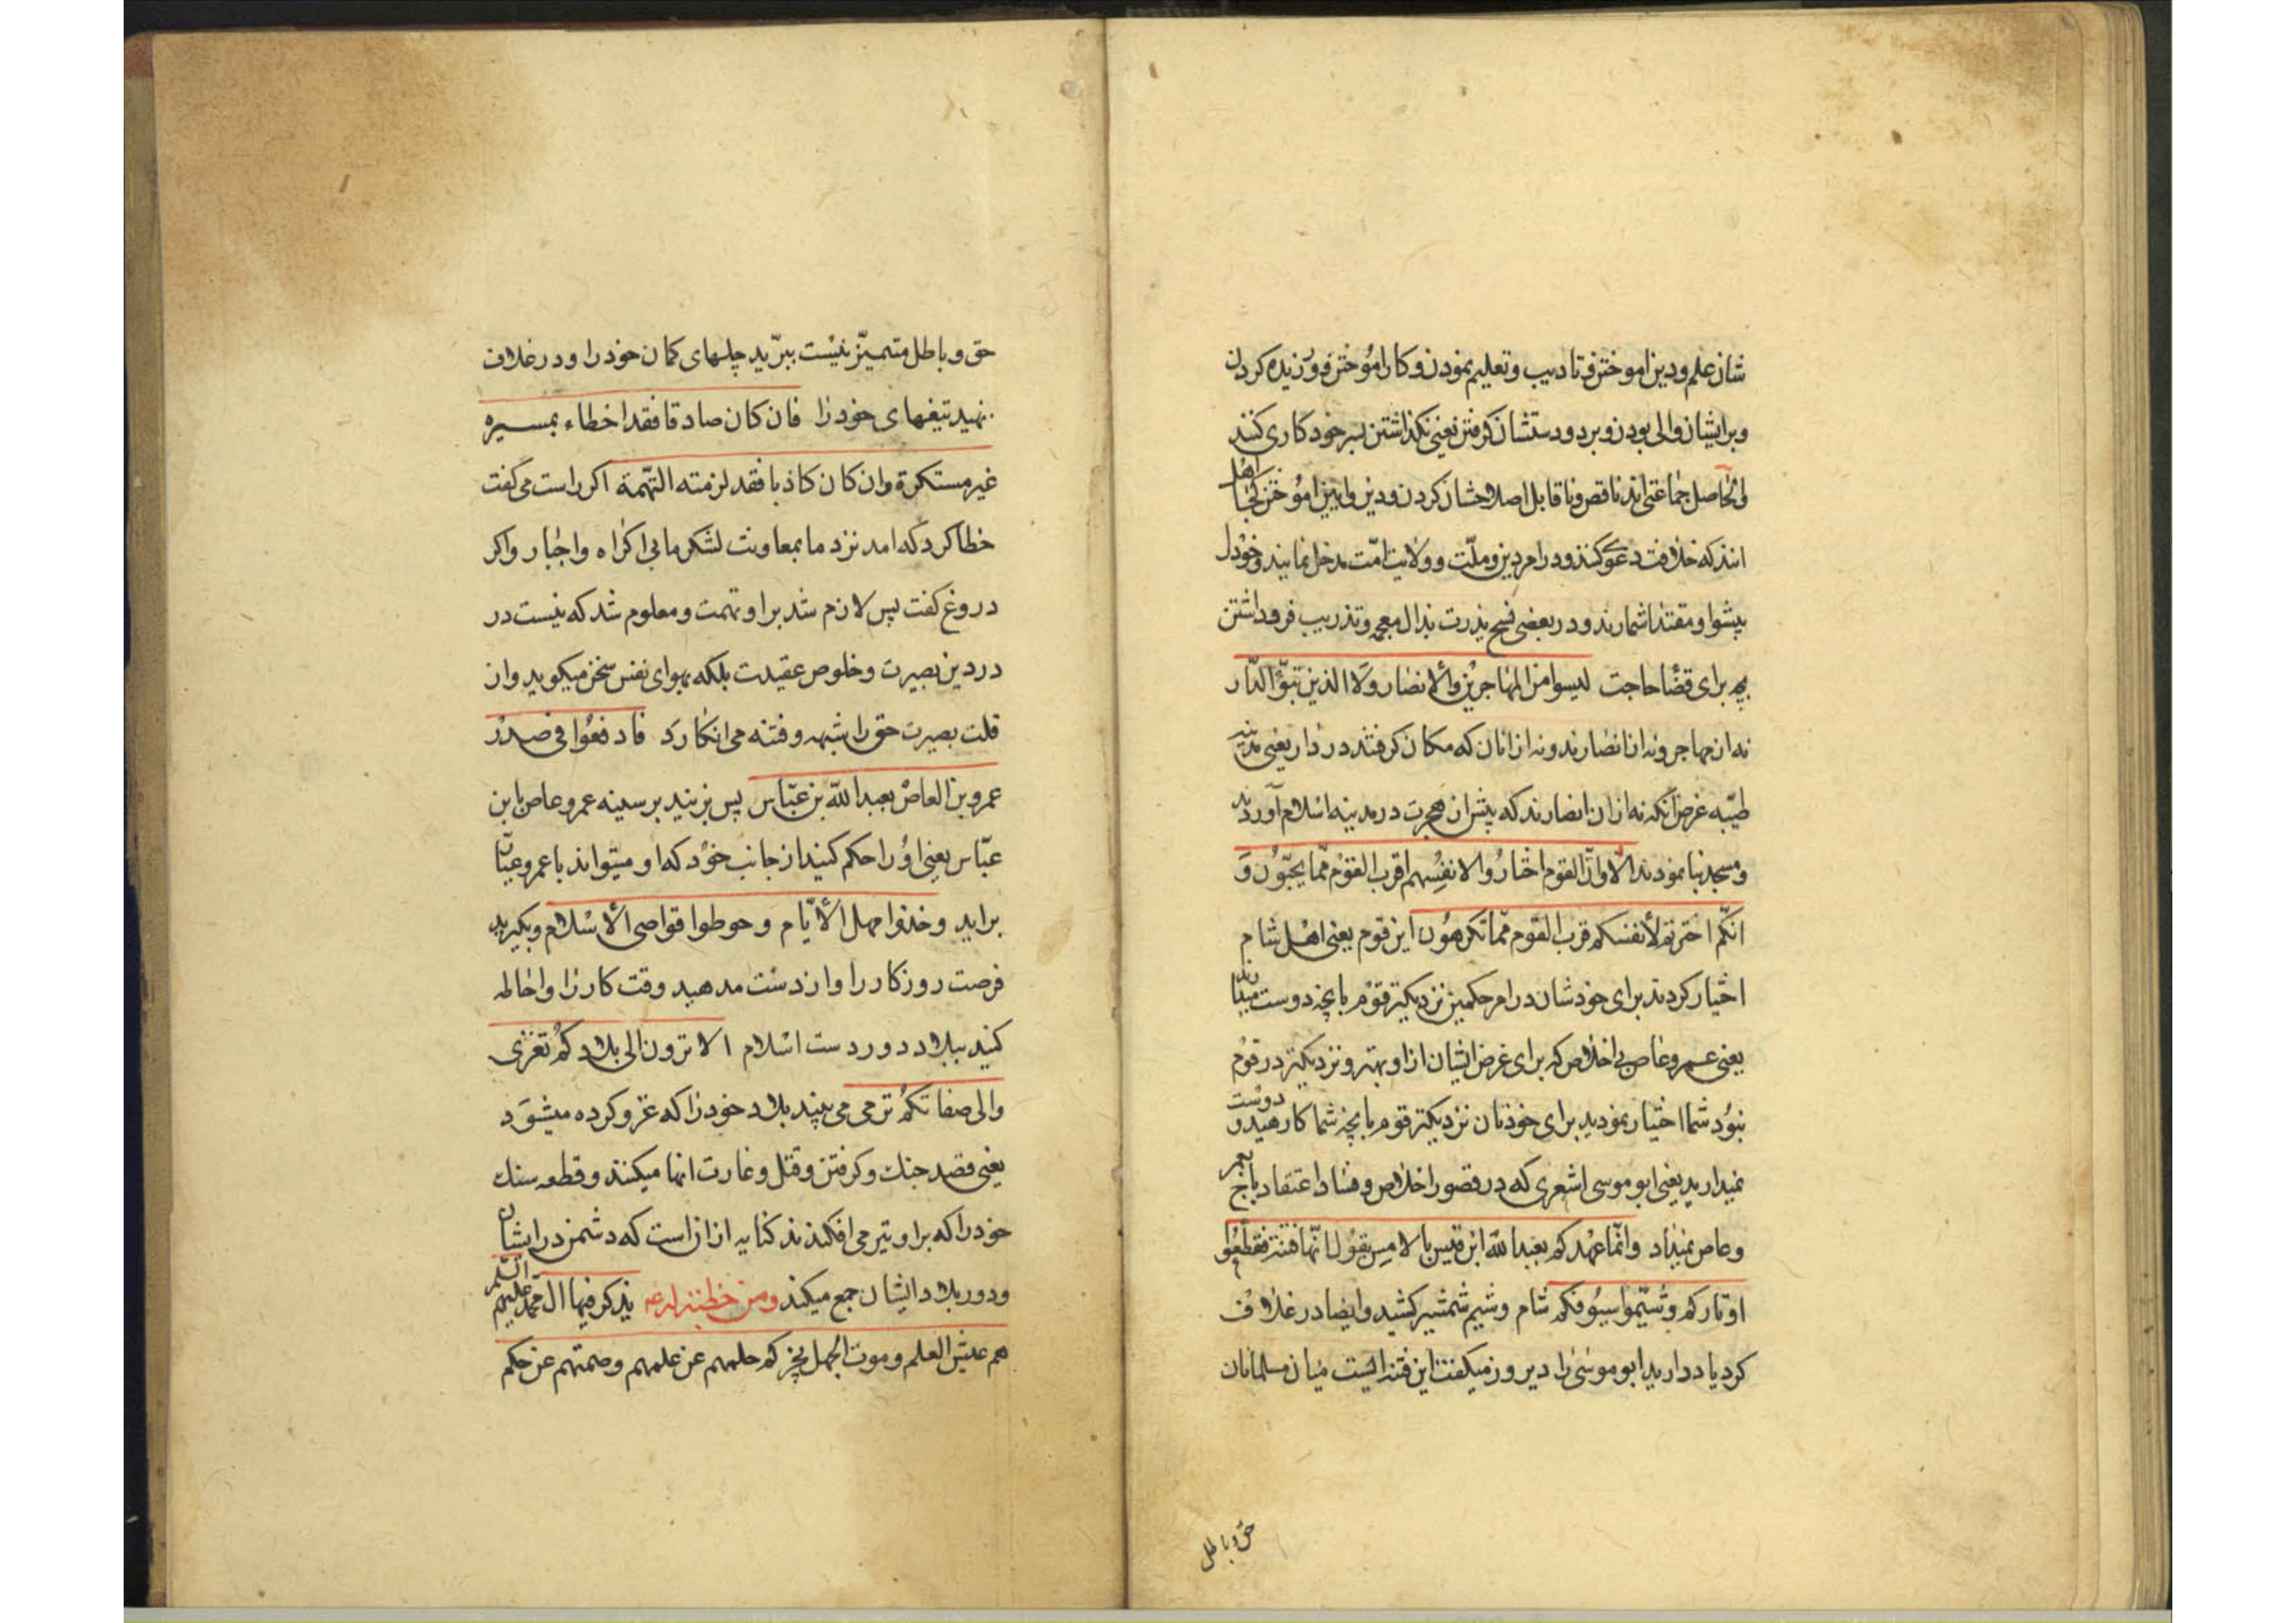 شان علم و دین اموختن و تادیب و تعلیم نمودن و کار اموختن و ورزیده کردن
و بر ایشان والی بودن و بر دو دستشان گرفتن یعنی نگذاشتن بسر خود کاری کنند
الحاصل جماعتی اند ناقص و ناقابل اصلاحشان کردن و دین و ایین اموختن کجا اهل
انند که خلافت دعوی کنند و در امر دین و ملّت و ولایت امّت مدخل نمایند و خود را
پیشوا و مقتدا شمارند و در بعضی نسخ یذرب بذال معجمه و تذریب فرو داشتن
بچه برای قضا حاجت لیسوا من المهاجرین والأنصار ولا الذین تبوّؤا الدّار
نه از مهاجر و نه از انصارند و نه از انان که مکان گرفتند در دار یعنی مدینه
طیّبه غرض آنکه نه از ان انصارند که پیش از هجرت در مدینه اسلام آوردند
و مسجد بنا نمودند الا وانّ القوم اختاروا لانفسهم اقرب القوم ممّا یحبّون و
انکم اخترتم لأنفسکم قرب القوم ممّا تکرهون این قوم یعنی اهل شام
اختیار کردند برای خودشان در امر حکمین نزدیکتر قوم بانچه دوست میدارند
یعنی عمرو عاص بی اخلاص که برای غرض ایشان از او بهتر و نزدیکتر در قوم
نبود شما اختیار نمودید برای خودتان نزدیکتر قوم بانچه شما کارهید و دوست
نمیدارید یعنی ابو موسی اشعری که در قصور اخلاص و فساد اعتقاد باج بعمر
و عاص نمیداد وانّما عهدکم بعبد الله ابن قیس بالامس یقول انّها فتنة فقطّعوا
اوتارکم وشیّموا سیوفکم شام و شیم شمشیر کشید و ایضا در غلاف
کرد یاد دارید ابو موسی را دیروز میکفت این فتنه ایست میان مسلمانان
حق و باطل
حق و باطل متمیّز نیست ببرّید چلهای کمان خود را و در غلاف
نهید تیغهای خود را فان کان صادقا فقد اخطاء بمسیره
غیر مستکره وان کان کاذبا فقد لزمته التّهمة اکر راست می گفت
خطا کرد که امد نزد ما بمعاونت لشکر ما بی اکراه و اجبار و اکر
دروغ کفت پس لازم شد بر او تهمت و معلوم شد که نیست در
در دین بصیرت و خلوص عقیدت بلکه بهوای نفس سخن میکوید و از
قلت بصیرت حق را شبهه و فتنه می انکارد فادفعوا فی صدر
عمرو بن العاص بعبد الله بن عبّاس پس بزنید بر سینه عمرو عاص بابن
عبّاس یعنی او را حکم کنید از جانب خود که او میتواند با عمرو عیّار
براید وخذوا مهل الأیّام وحوطوا قواصی الأسلام و بکیرید
فرصت روزکار را و از دست مدهید وقت کار را و احاطه
کنید ببلاد دور دست اسلام الا ترون الی بلادکم تغزی
والی صفاتکم ترمی می بینید بلاد خود را که غزو کرده میشود
یعنی قصد جنک و کرفتن و قتل و غارت انها میکنند و قطعه سنک
خود را که بر او تیر می افکنند کنایه از ان است که دشمن در ایشان
و در بلاد ایشان جمع میکند ومن خطبة له ع یذکر فیها ال محمّد علیهم السّلم
هم عیش العلم وموت الجهل یخبرکم حلمهم عن علمهم وصمتهم عن حکم